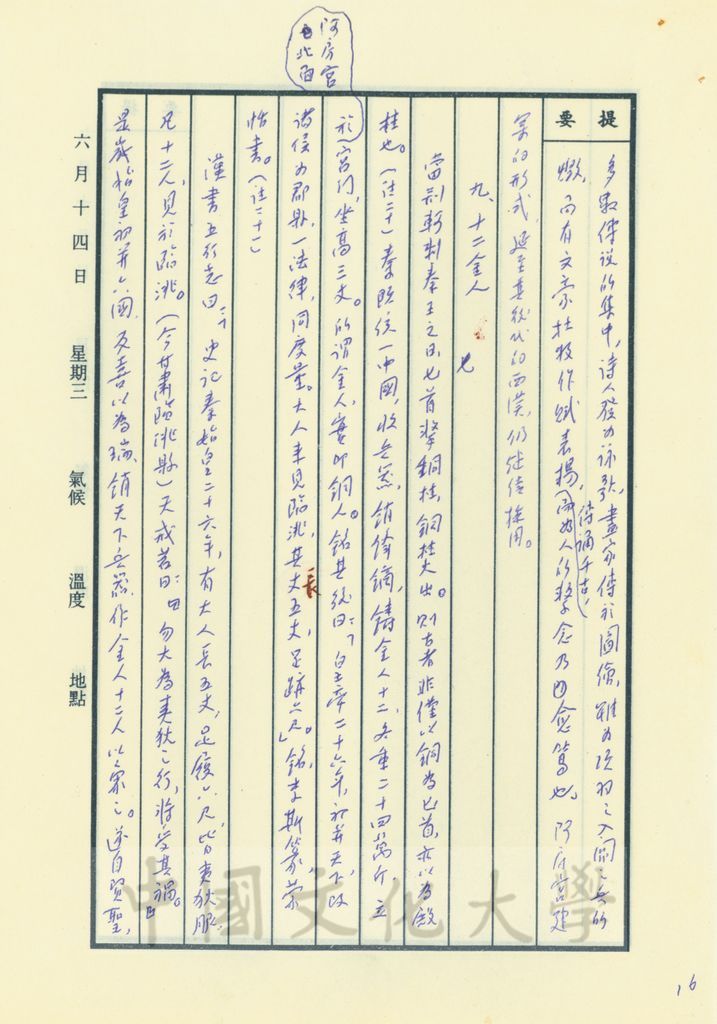 提要
多數傳說的集中,詩人發为詠歌,畫家傳於圖繪,雖为項羽之入關之兵的
燬,而有文豪杜牧作賦表揚,傳誦千古,而后人的繫念乃日愈篤也。阿房宮建
築的形式,延至其後代的西漢,仍继续採用。
九、十二金人
當荊軻刺秦王之日,匕首擊銅柱,銅柱火出。則古者非僅以銅為匕首,亦以為殿
柱也。(註二十)秦既統一中國,收兵器,銷鋒鏑,鑄金人十二,各重二十四萬斤,立
於阿房宮北面宮门,坐高三丈。所謂金人,實即銅人。銘其後曰:「皇帝二十六年,初并天下,改
諸侯为郡縣,一法律,同度量。大人来見臨洮,其長五丈,足跡六尺。」銘,李斯篆,蒙
恬書。(註二十一)
漢書五行志曰:「史记秦始皇二十六年,有大人長五丈,足履六尺,皆夷狄服,
凡十二人,見於臨洮。(今甘肅臨洮縣)天戒若曰:勿大為夷狄之行,將受其禍。
是歲始皇初并六國,反喜以為瑞,銷天下兵器,作金人十二人以象之。遂自賢聖,
六月十四日 星期三 氣候 溫度 地點
16
中國文化大學